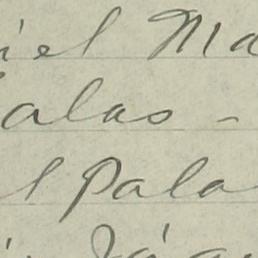 iel Ma
alas -
l Pala